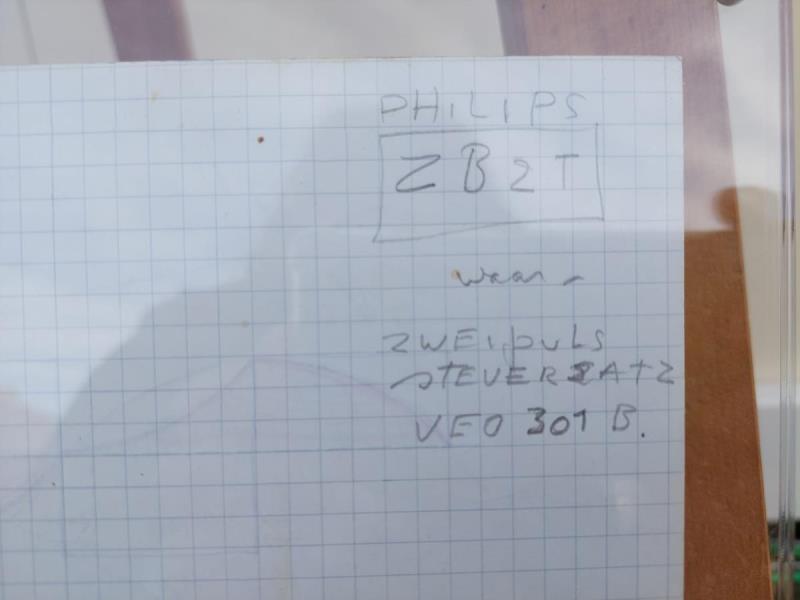 PHILIPS
ZB2T
waar
ZWEIPULS
STEUERSATZ
VEO 301 B.